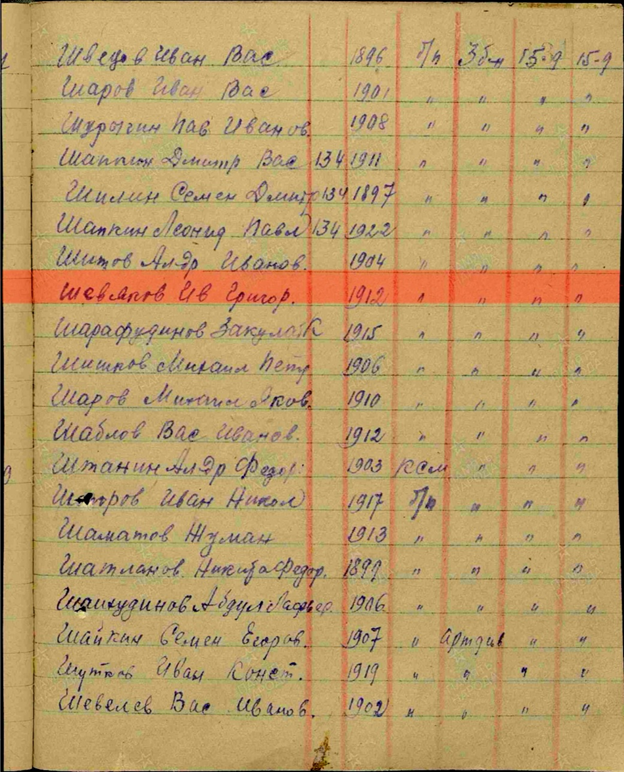 Шведов Иван Вас 1896 б/п 3 бн 15-9 15-9
Шаров Иван Вас 1901 " " " "
Шурыгин Пав Иванов. 1908 " " " "
Шапкин Дмитр Вас 134 1911 " " " "
Шилин Семен Дмитр 134 1897 " " " "
Шапкин Леонид Павл 134 1922 " " " "
Шитов Алдр Иванов. 1904 " " " "
Шевляков Ив Григор. 1912 " " " "
Шарафудинов Закула К 1915 " " " "
Шишков Михаил Петр 1906 " " " "
Шаров Михаил Яков. 1910 " " " "
Шаблов Вас Иванов. 1912 " " " "
Штанин Алдр Федор. 1903 КСМ " " "
Иван Никол 1917 б/п " " "
Шаматов Жуман 1913 " " " "
Шатланов Никита Федор. 1899 " " " "
Абдул 1906 " " " "
Шайкин Семен Егоров. 1907 " Артдив " "
Шутков Иван Конст. 1919 " " " "
Шевелев Вас Иванов. 1902 " " " "